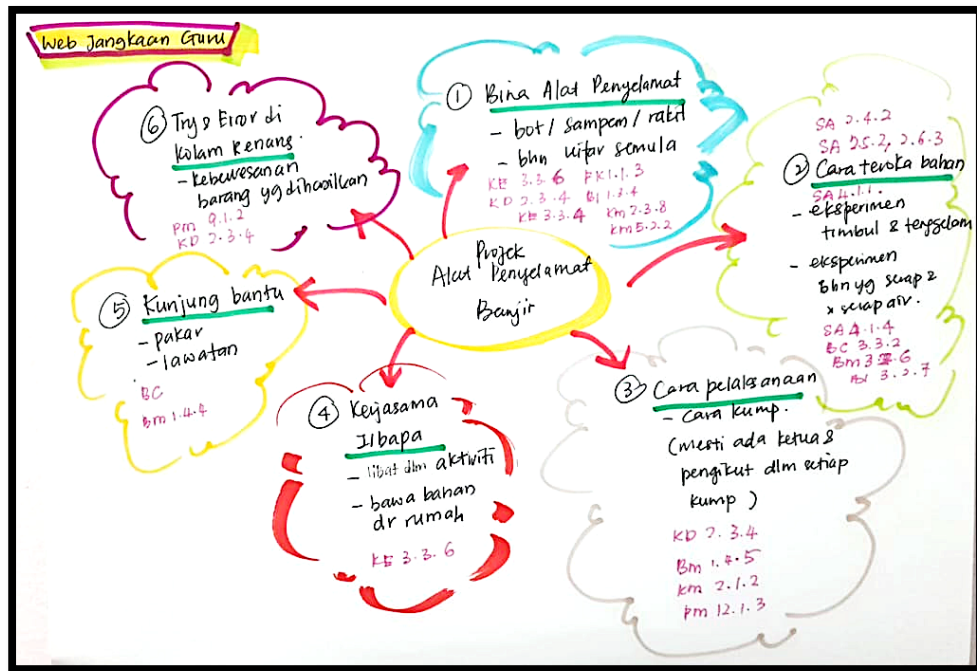 Web Jangkaan Guru
Projek
Alat Penyelamat
Banjir
① Bina Alat Penyelamat
- bot / sampan / rakit
- bhn kitar semula
KE 3.3.6 FK 1.1.3
KD 2.3.4 BI 1.3.4
KE 3.3.4 KM 2.3.8
KM 5.2.2
SA 2.4.2
SA 2.5.2, 2.6.3
② Cara teroka bahan
SA 4.1.1.
- eksperimen
timbul & tenggelam
- eksperimen
bhn yg serap &
x serap air.
SA 4.1.4
BC 3.3.2
Bm 3 .6
BI 3.2.7
③ Cara pelaksanaan
- Cara kump.
(mesti ada ketua &
pengikut dlm setiap
kump )
KD 2.3.4
Bm 1.4.5
KM 2.1.2
PM 12.1.3
④ Kerjasama
Ibbapa
- libat dlm aktiviti
- bawa bahan
dr rumah
KE 3.3.6
⑤ Kunjung bantu
- pakar
- lawatan
BC
Bm 1.4.4
⑥ Try & Error di
Kolam Renang.
- keberkesanan
barang yg dihasilkan
PM 9.1.2
KD 2.3.4